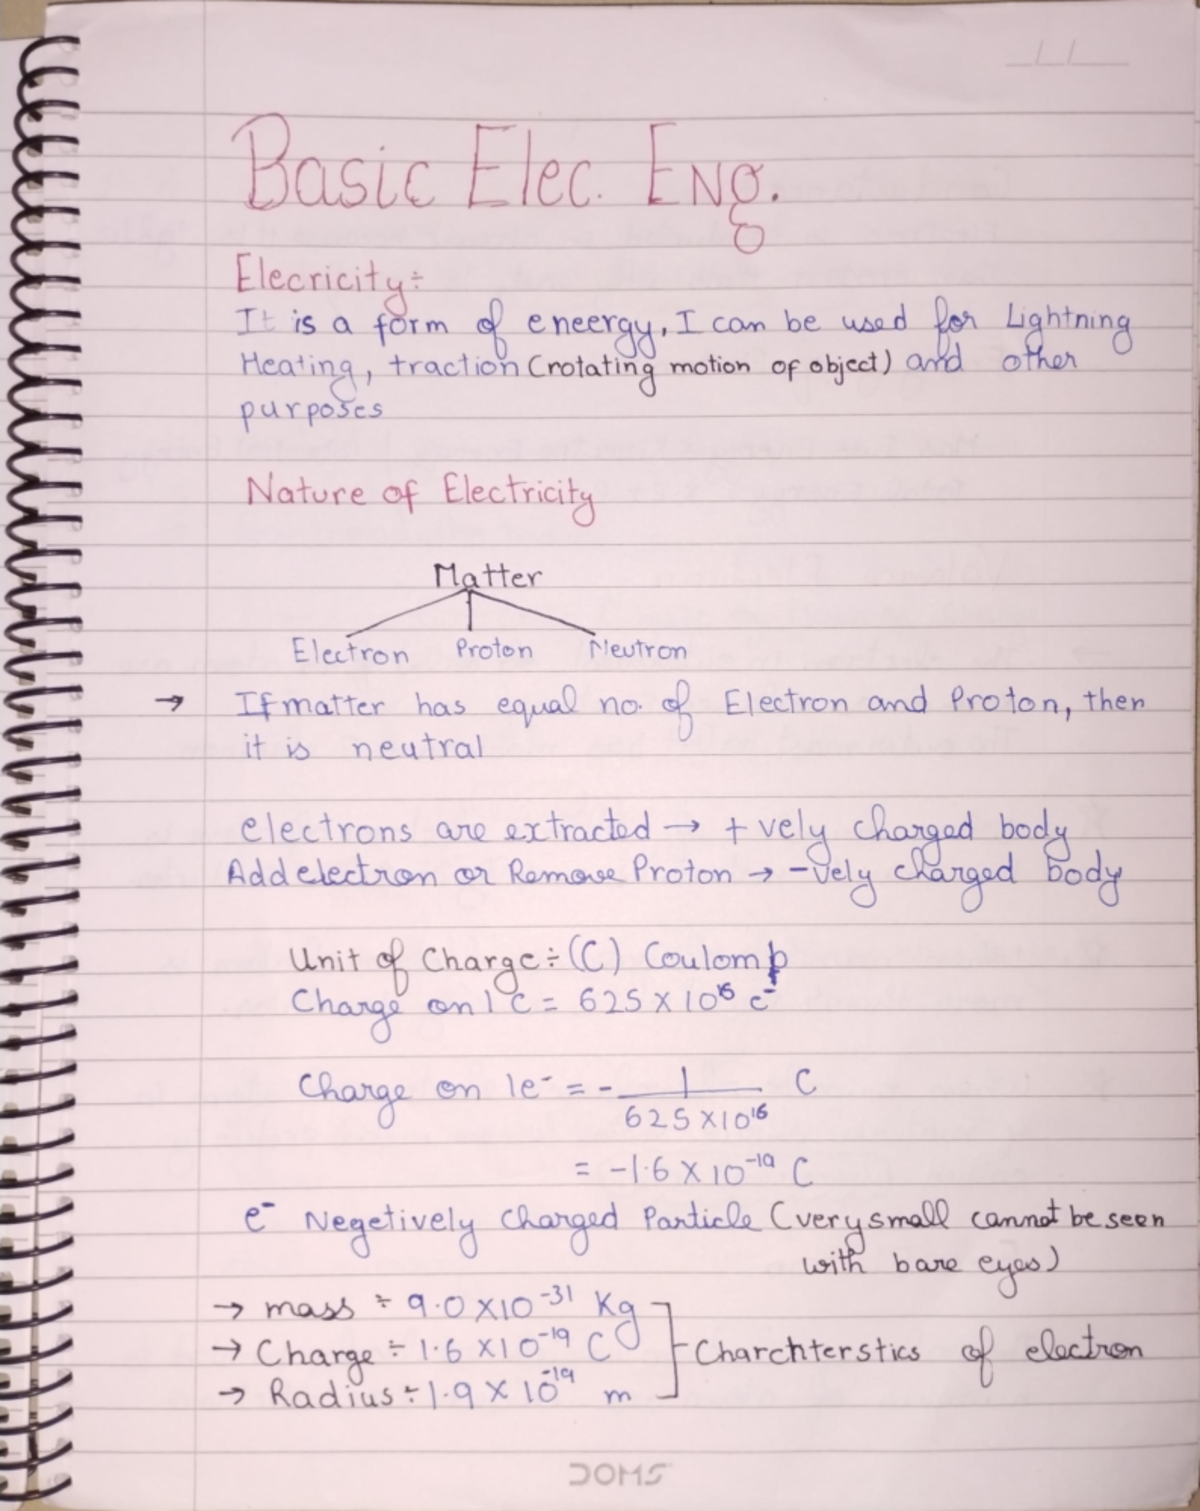 Basic Elec. Eng.
Elecricity÷
It is a form of eneergy, I can be used for Lightning
Heating, traction (rotating motion of object) and other
purposes
Nature of Electricity
Matter
Electron Proton Neutron
→ If matter has equal no. of Electron and Proton, then
it is neutral
electrons are extracted → + vely charged body
Add electron or Remove Proton → -vely charged body
Unit of Charge ÷ (C) Coulomb
Charge on 1 C = 625 × 10¹⁶ e⁻
Charge on 1e⁻ = - 1 C
625 × 10¹⁶
= -1.6 × 10⁻¹⁹ C
e⁻ Negetively Charged Particle (very small cannot be seen
with bare eyes)
→ mass ÷ 9.0 × 10⁻³¹ Kg
→ Charge ÷ 1.6 × 10⁻¹⁹ C
Charchterstics of electron
→ Radius ÷ 1.9 × 10⁻¹⁹ m
DOMS